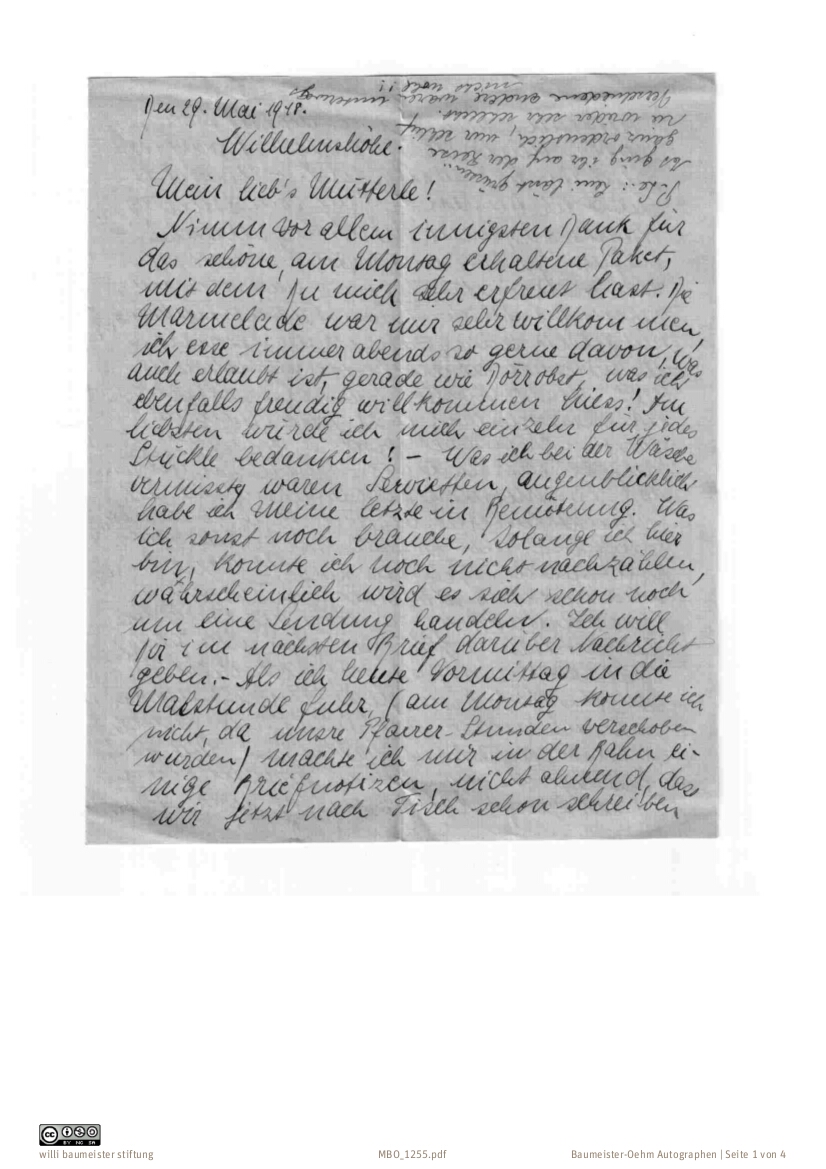 Den 29. Mai 1918.
Wilhelmshöhe.
Mein lieb's Mütterle!
Nimm vor allem innigsten Dank für
das schöne, am Montag erhaltene Paket,
mit dem Du mich sehr erfreut hast. Die
Marmelade war mir sehr willkommen,
ich esse immer abends so gerne davon, was
auch erlaubt ist, gerade wie Dörrobst, was ich
ebenfalls freudig willkommen hiess! Am
liebsten würde ich mich einzeln für jedes
Stückle bedanken! – Was ich bei der Wäsche
vermisste, waren Servietten, augenblicklich
habe ich meine letzte in Benützung. Was
ich sonst noch brauche, solange ich hier
bin, konnte ich noch nicht nachzählen,
wahrscheinlich wird es sich schon noch
um eine Sendung handeln. Ich will
Dir im nächsten Brief darüber Nachricht
geben. – Als ich heute Vormittag in die
Malstunde fuhr, (am Montag konnte ich
nicht, da unsre Pfarrer-Stunden verschoben
wurden) machte ich mir in der Bahn ei-
nige Briefnotizen, nicht ahnend, dass
wir jetzt nach Tisch schon schreiben
lässt grüssen.
Es ging ihr auf der Reise
ganz ordentlich, nur schlief
sie wieder sehr schlecht.
Verschiedene andere waren unterwegs
nicht wohl!!
willi baumeister stiftung
MBO_1255.pdf
Baumeister-Oehm Autographen | Seite 1 von 4
CC BY NC SA